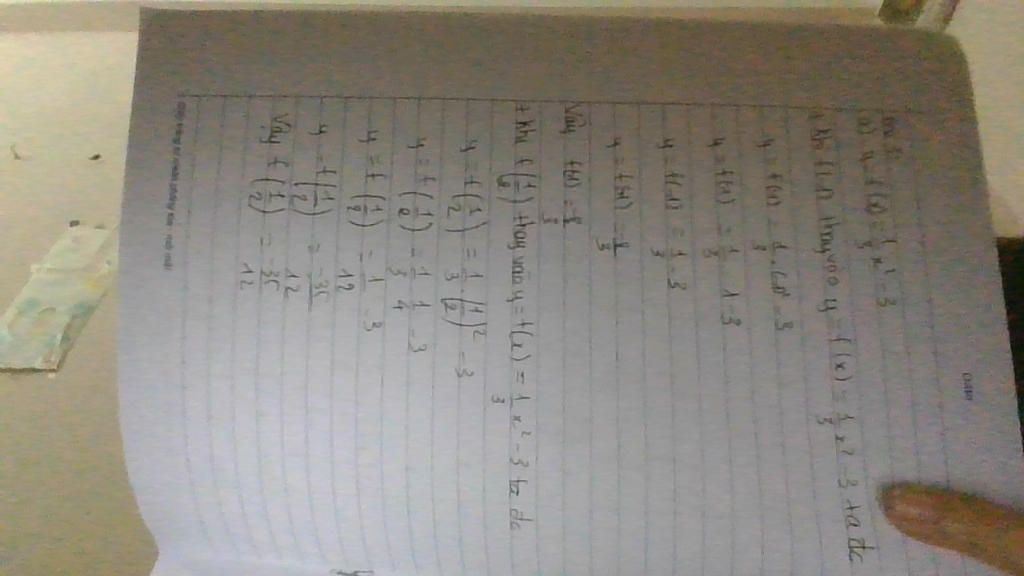 DATE
a) y = f(x) = 1/3 x² - 3
Thay vào y = f(x) = 1/3 x² - 3 ta dc
y = f(1) = 1/3 . (1)² - 3
y = f(1) = 1/3 . 1 - 3
y = f(1) = 1/3 - 3
y = f(1) = -8/3
Vậy f(1) = -8/3
+ Thay f(1/2) thay vào y = f(x) = 1/3 x² - 3 ta dc
y = f(1/2) = 1/3 . (1/2)² - 3
y = f(1/2) = 1/3 . 1/4 - 3
y = f(1/2) = 1/12 - 3
y = f(1/2) = -35/12
Vậy f(1/2) = -35/12